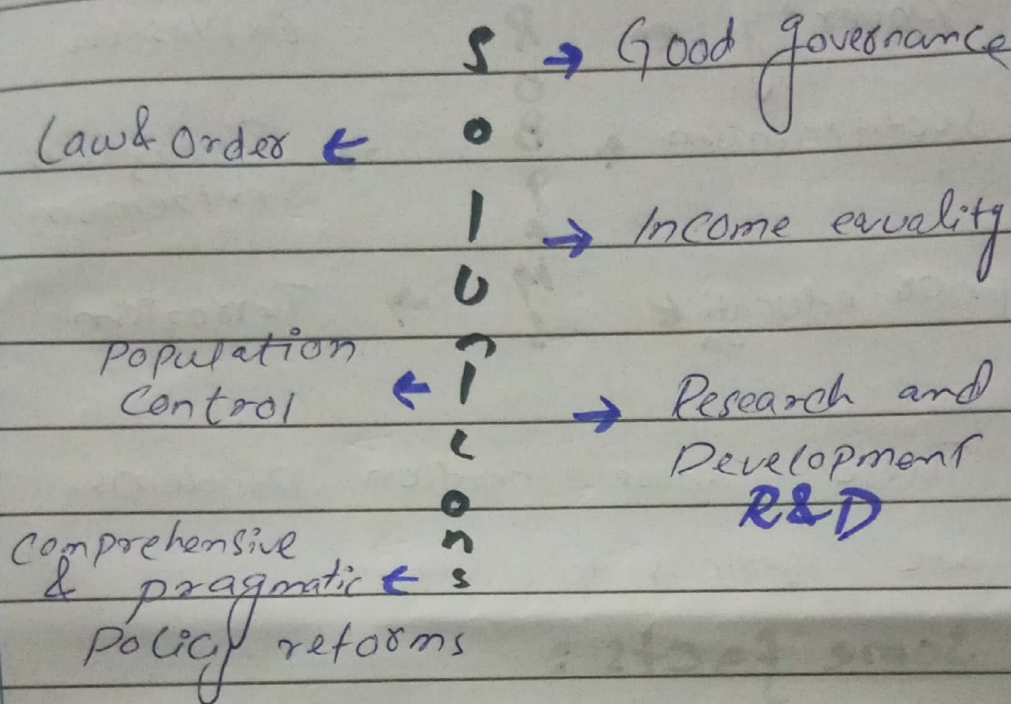 S → Good governance
Law & Order ←
→ Income equality
Population
Control ←
→ Research and
Development
R&D
Comprehensive
& pragmatic ←
Policy reforms
Solutions